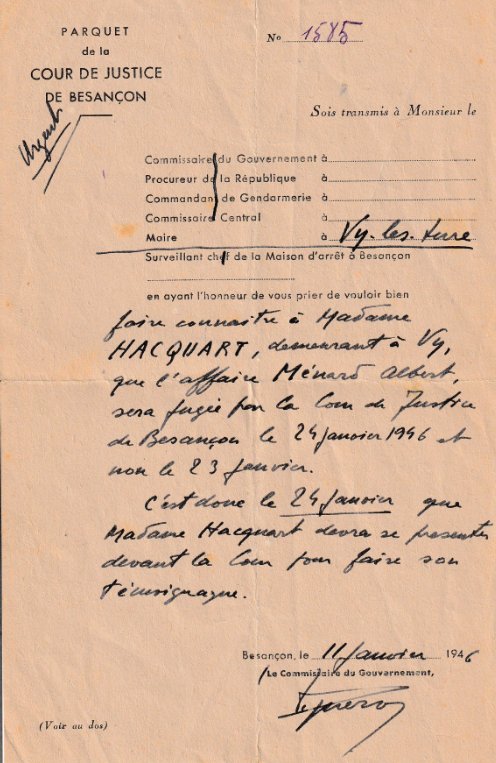 PARQUET
de la
COUR DE JUSTICE
DE BESANÇON
No 1585
Urgent
Sois transmis à Monsieur le
Commissaire du Gouvernement à
Procureur de la République à
Commandant de Gendarmerie à
Commissaire Central à
Maire à Vy-les-Lure
Surveillant chef de la Maison d'arrêt à Besançon
en ayant l'honneur de vous prier de vouloir bien
faire connaitre à Madame
HACQUART, demeurant à Vy,
que l'affaire Ménard Albert,
sera jugée par la Cour de Justice
de Besançon le 24 janvier 1946 et
non le 23 janvier.
C'est donc le 24 janvier que
Madame Hacquart devra se presenter
devant la Cour pour faire son
témoignage.
Besançon, le 11 janvier 1946
Le Commissaire du Gouvernement,
(Voir au dos)